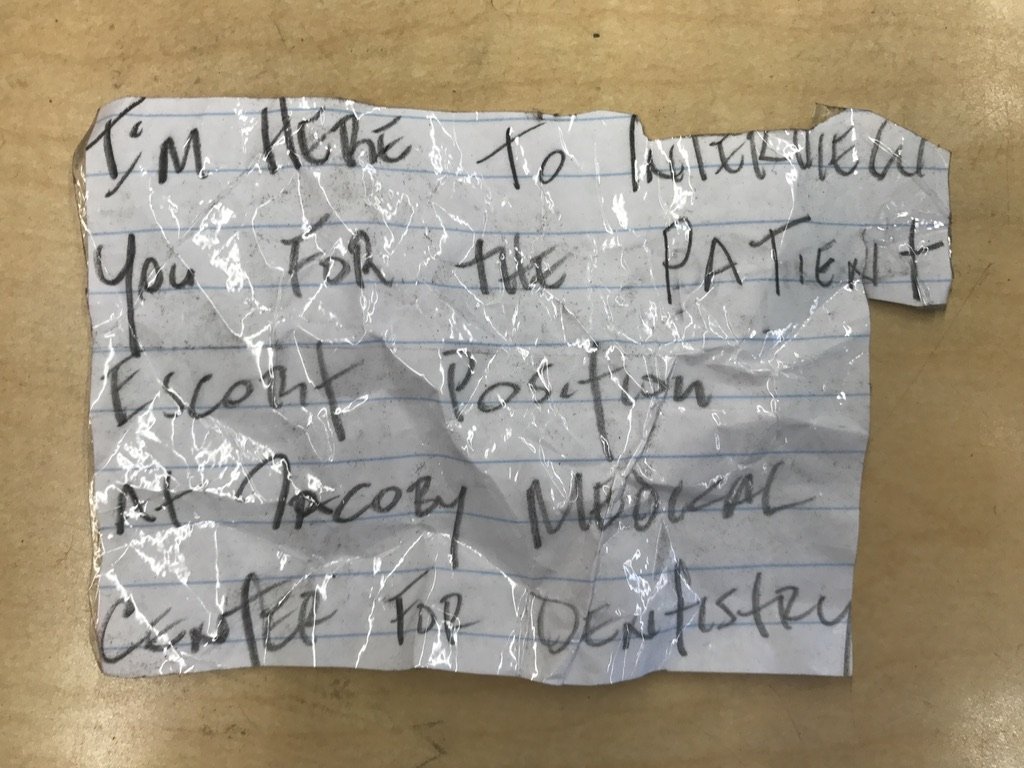 I'M HERE TO INTERVIEW
you FOR THE PATIENt
ESCORt Position
At JACOBY MEDICAL
CENtER FOR DENtIStRY